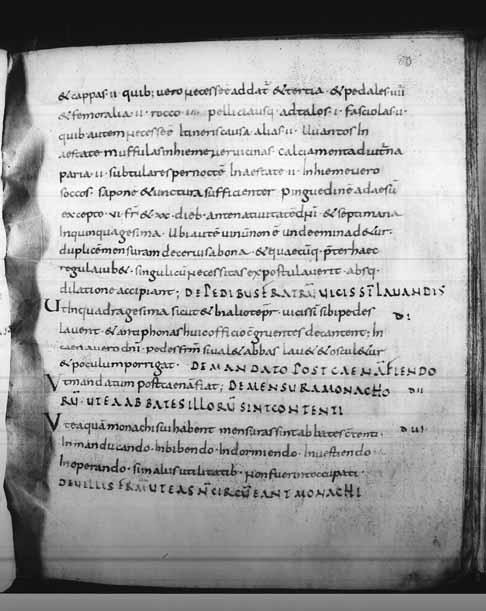 & cappas · ii · quib; vero necesse ē addat̄ & tertia · & pedales iiii
& femoralia · ii · rocco · pelliciā usq; ad talos · i · fasciolas · ii ·
quib autem necesse ē Itineris causa · alias · ii · Uuantos In
aestate muffulas in hieme ueruicinas · calciamenta diurna
paria · ii · subtulares per nocte In aestate · ii · In hieme uero
soccos · sapone & unctura sufficienter pinguedinē ad aesū
excepto · ui · fr̄ & xx · dieb · ante natiuitatē dn̄i · & septimana
In quinquagesima · Ubi autē uinū non ē unde emina det̄ur ·
duplicē mensuram de ceruisa bona · & quaecūq; pr̄ter haec
regula iub& · singulicū necessitas expostulauerit · absq ·
dilatione accipiant ; DE PEDIBUS FRATRŪ UICISSĪ LAUANDIS
Ut In quadragesima sicut & In alio tēpr̄ · uicissī sibi pedes
lauent · & antiphonas huic officio cgruentes decantent ; In
caena uero dn̄i · pedes frm̄ si ual& abbas lau& & oscul&ur
& poculum porrigat · DE MANDATO POST CAENĀ FIENDO
Ut mandatum post caenā fiat ; DE MENSURA MONACHO
RŪ · UT EA ABBATES ILLORŪ SINT CONTENTI
Ut ea quā monachi sui habent mensura sint abbates ctenti ·
In manducando · In bibendo · In dormiendo · In uestiendo
In operando · si in aliis utilitatib · non fuerint occupati ·
DE UILLIS UT EAS N̄ CIRCŪEANT MONACHI